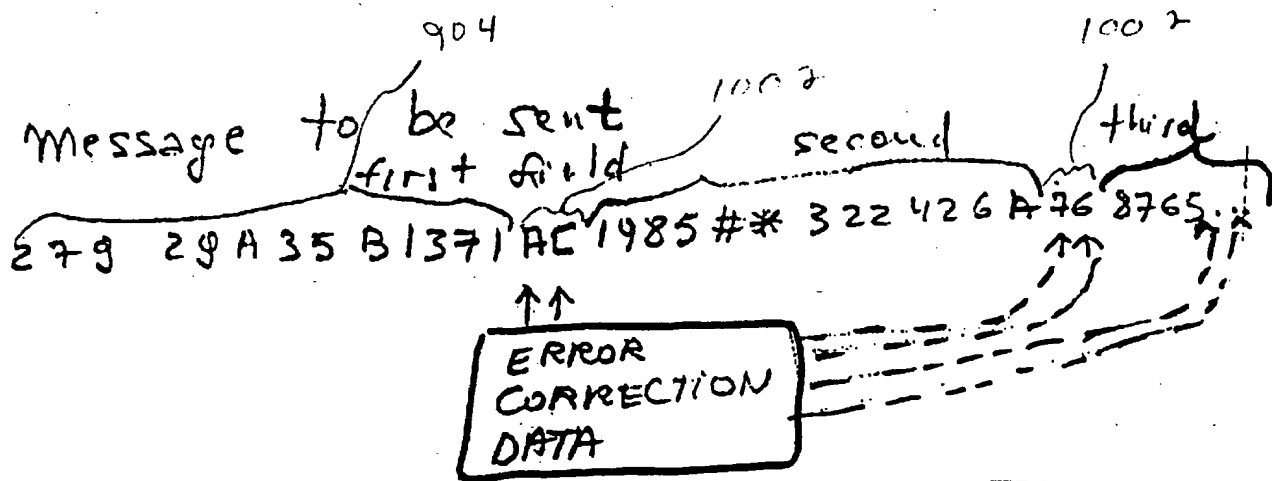 904
1002
1002
Message to be sent
first field
second
third
279 29A35B1371AC1985#*322426A768765..
ERROR
CORRECTION
DATA